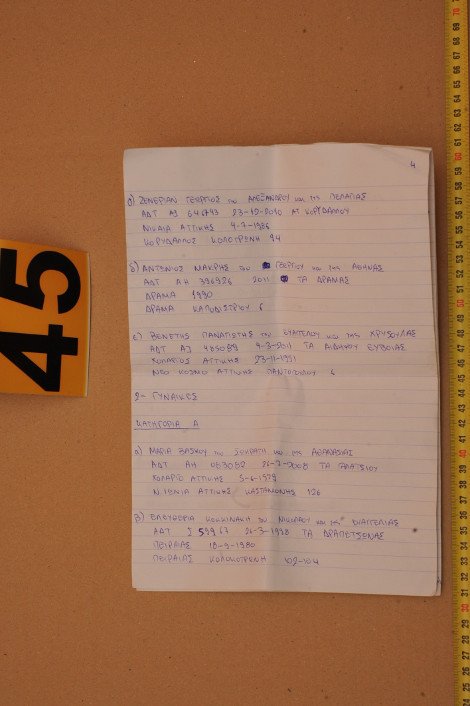 4
α) ΖΕΝΕΡΙΑΝ ΓΕΩΡΓΙΟΣ του ΑΛΕΞΑΝΔΡΟΥ και της ΠΕΛΑΓΙΑΣ
ΑΔΤ ΑΒ 23-12-2010 ΑΤ ΚΟΡΥΔΑΛΛΟΥ
ΝΙΚΑΙΑ ΑΤΤΙΚΗΣ 4-7-1986
ΚΟΡΥΔΑΛΛΟΣ ΚΟΛΟΤΡΩΝΗ 94
δ) ΑΝΤΩΝΙΟΣ ΜΑΚΡΗΣ του ΓΕΩΡΓΙΟΥ και της ΑΘΗΝΑΣ
ΑΔΤ ΑΗ 396926 2011 ΤΑ ΔΡΑΜΑΣ
ΔΡΑΜΑ 1990
ΔΡΑΜΑ ΚΑΠΟΔΙΣΤΡΙΟΥ 6
ε) ΒΕΝΕΤΗΣ ΠΑΝΑΓΙΩΤΗΣ του ΕΥΑΓΓΕΛΟΥ και της ΧΡΥΣΟΥΛΑΣ
ΑΔΤ ΑΖ 9-3-2011 ΤΑ ΑΙΔΗΨΟΥ ΕΥΒΟΙΑΣ
ΧΟΛΑΡΓΟΣ ΑΤΤΙΚΗΣ 23-11-1991
ΝΕΟ ΚΟΣΜΟ ΑΤΤΙΚΗΣ
2- ΓΥΝΑΙΚΕΣ
ΚΑΤΗΓΟΡΙΑ Α
α) ΜΑΡΙΑ ΒΛΑΧΟΥ του ΣΩΚΡΑΤΗ και της ΑΘΑΝΑΣΙΑΣ
ΑΔΤ ΑΗ 26-2-2008 ΤΑ
ΧΟΛΑΡΓΟ ΑΤΤΙΚΗΣ 5-6-1979
Ν. ΙΩΝΙΑ ΑΤΤΙΚΗΣ ΚΑΣΤΑΜΟΝΗΣ 126
β) ΕΛΕΥΘΕΡΙΑ ΚΟΚΚΙΝΑΚΗ του ΝΙΚΟΛΑΟΥ και της ΕΥΑΓΓΕΛΙΑΣ
ΑΔΤ 26-3-1998 ΤΑ ΔΡΑΠΕΤΣΩΝΑΣ
ΠΕΙΡΑΙΑΣ 18-9-1980
ΠΕΙΡΑΙΑΣ ΚΟΛΟΚΟΤΡΩΝΗ 102-104
45